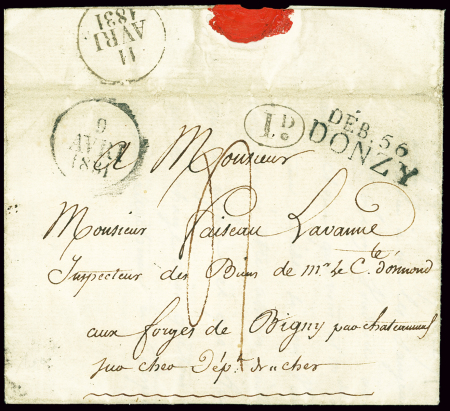 11
AVRI
1831
9
AVRI
1831
I.D.
DÉB 56
DONZY
a Monsieur
Monsieur Paiseau Lavanne
Inspecteur des Biens de mr le C.te d'ormond
aux forges de Bigny par chateauneuf
sur cher Dép.t du cher